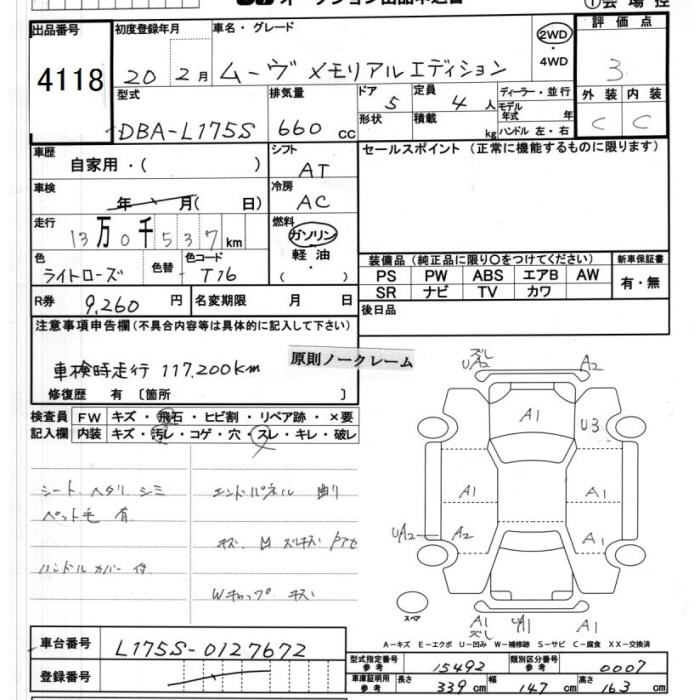 オークション出品申込書
①会場控
出品番号 初度登録年月 車名・グレード 2WD・4WD 評価点
4118 20 2月 ムーヴ メモリアルエディション 3
型式 排気量 ドア 5 定員 4人 ディーラー・並行 外装 内装
DBA-L175S 660 cc 形状 積載 kg モデル年式 年 ハンドル 左・右 C C
車歴 自家用・( ) シフト AT セールスポイント (正常に機能するものに限ります)
車検 年 月( 日) 冷房 AC
走行 13万0千537km 燃料 ガソリン・軽油・( )
色 ライトローズ 色替 色コード T16
装備品 (純正品に限り○をつけてください) 新車保証書
PS PW ABS エアB AW 有・無
SR ナビ TV カワ
R券 9,260 円 名変期限 月 日 後日品
注意事項申告欄(不具合内容等は具体的に記入して下さい)
車検時走行 117,200km
原則ノークレーム
修復歴 有 〔箇所 〕
検査員 FW キズ・飛石・ヒビ割・リペア跡・×要
記入欄 内装 キズ・汚レ・コゲ・穴・スレ・キレ・破レ
シート ヘタリ シミ エンドパネル 曲り
ペット毛 有
ハンドルカバー付
Wキャップ キズ
UA2 A2
A1 U3
A1 A1
UA2 A2 A1
スペア A1 A1
A-キズ E-エクボ U-凹み W-補修跡 S-サビ C-腐食 XX-交換済
車台番号 L175S-0127672
登録番号
型式指定番号 参考 15492 類別区分番号 参考 0007
車庫証明用 参考 長さ 339 cm 幅 147 cm 高さ 163 cm